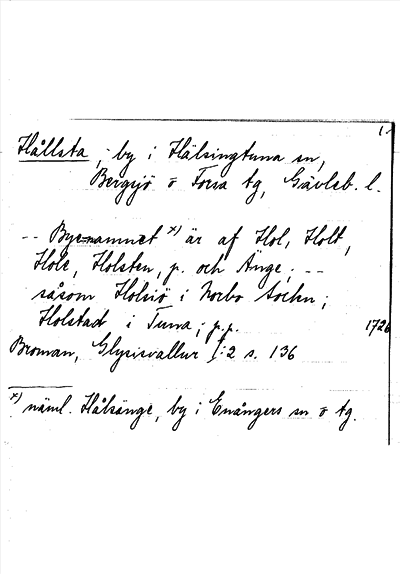 1.
Hållsta, by i Hälsingtuna sn,
Bergsjö o Forsa tg, Gävleb. l.
-- Byenamnet x) är af Hol, Holt,
Hole, Holsten, p. och Änge; --
såsom Holsiö i Norbo Sochn;
Holstad i Tuna; p.p.
1726
Broman, Glysisvallur I:2 s. 136
x) näml. Hålsänge, by i Enångers sn o tg.